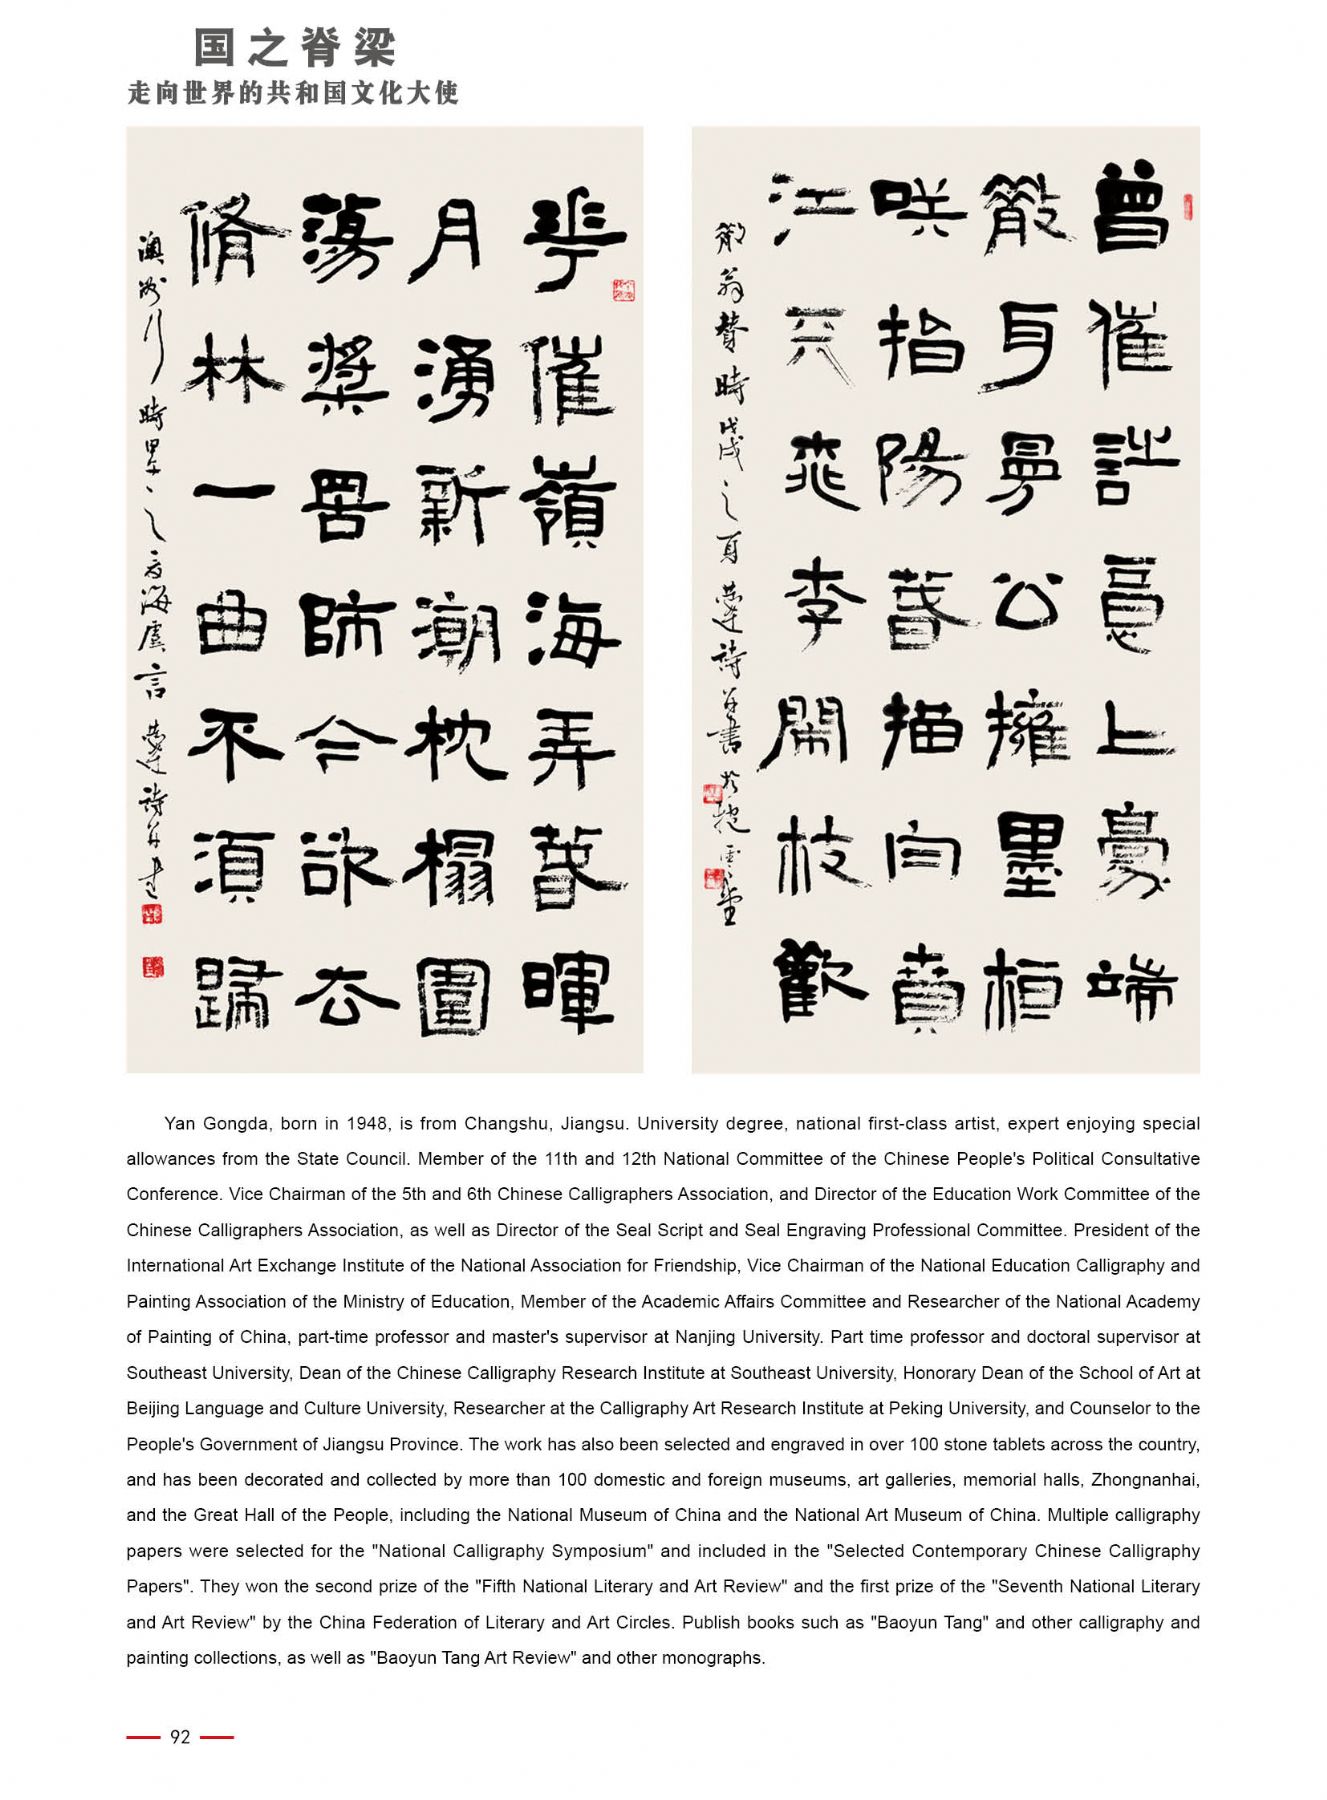 国之脊梁
走向世界的共和国文化大使
華催嶺海弄春暉
月湧新潮枕榻圍
蕩槳罟師今欲去
脩林一曲不須歸
澳洲行時甲午之 海虞言恭達詩并書
曾催詩意上豪端
身夢公擁墨桓
咲指陽春描向蕡
江天桃李開枝歡
翁贊時戊戌之夏恭達詩并書於抱雲堂
Yan Gongda, born in 1948, is from Changshu, Jiangsu. University degree, national first-class artist, expert enjoying special
allowances from the State Council. Member of the 11th and 12th National Committee of the Chinese People's Political Consultative
Conference. Vice Chairman of the 5th and 6th Chinese Calligraphers Association, and Director of the Education Work Committee of the
Chinese Calligraphers Association, as well as Director of the Seal Script and Seal Engraving Professional Committee. President of the
International Art Exchange Institute of the National Association for Friendship, Vice Chairman of the National Education Calligraphy and
Painting Association of the Ministry of Education, Member of the Academic Affairs Committee and Researcher of the National Academy
of Painting of China, part-time professor and master's supervisor at Nanjing University. Part time professor and doctoral supervisor at
Southeast University, Dean of the Chinese Calligraphy Research Institute at Southeast University, Honorary Dean of the School of Art at
Beijing Language and Culture University, Researcher at the Calligraphy Art Research Institute at Peking University, and Counselor to the
People's Government of Jiangsu Province. The work has also been selected and engraved in over 100 stone tablets across the country,
and has been decorated and collected by more than 100 domestic and foreign museums, art galleries, memorial halls, Zhongnanhai,
and the Great Hall of the People, including the National Museum of China and the National Art Museum of China. Multiple calligraphy
papers were selected for the "National Calligraphy Symposium" and included in the "Selected Contemporary Chinese Calligraphy
Papers". They won the second prize of the "Fifth National Literary and Art Review" and the first prize of the "Seventh National Literary
and Art Review" by the China Federation of Literary and Art Circles. Publish books such as "Baoyun Tang" and other calligraphy and
painting collections, as well as "Baoyun Tang Art Review" and other monographs.
92